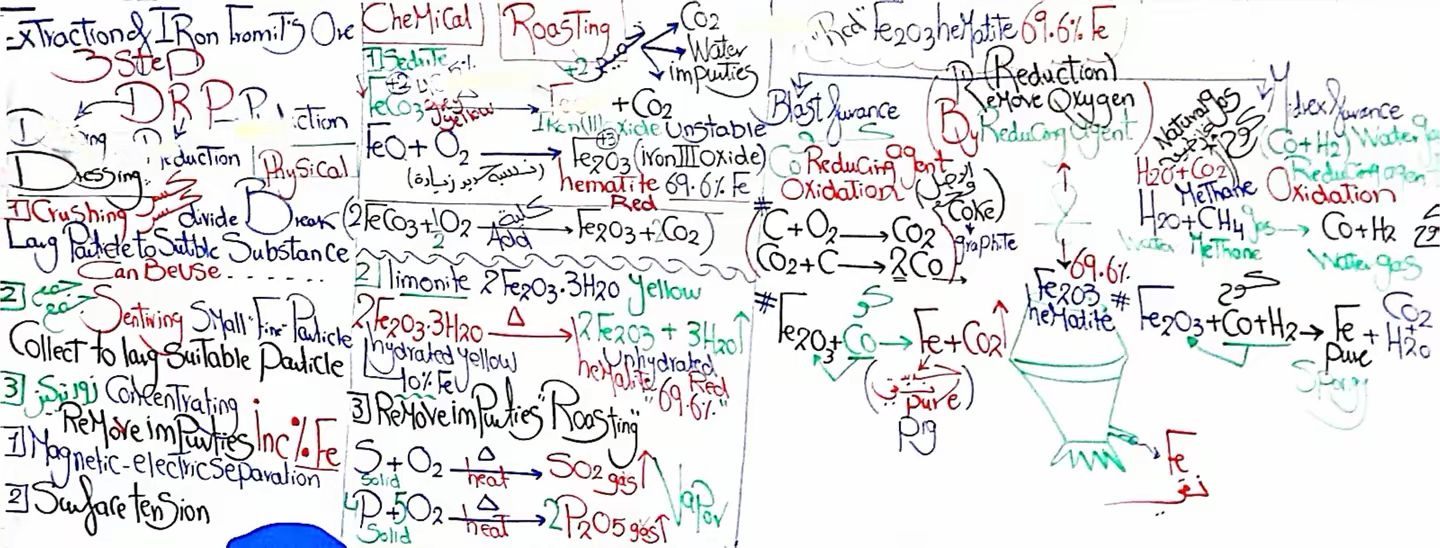 Extraction of IRon From iTs Ore
3 SteP
DRPP
ction
Dressing
duction
Physical
1 Crushing تكسير
divide Break
Larg Particle to Sutible Substance
Can Be Use......
2 تجميع
Sentiring Small "Fine" Particle
Collect to larg Suitable Particle
3 تركيز Concentrating
ReMove imPurties inc % Fe
1 Magnetic-electric Separation
2 Surface tension
CheMical
Roasting
تحميص
Co2
Water
imputies
1 Sedrite
+2
FeCo3
yellow
Δ
+ CO2
Iron(II) oxide Unstable
FeO + O2 → Fe2O3 (iron III Oxide)
+3
hematite 69.6% Fe
Red
2FeCo3 + 1/2 O2 → Fe2O3 + 2CO2
Add
2 limonite 2Fe2O3.3H2O yellow
2Fe2O3.3H2O Δ→ 2Fe2O3 + 3H2O↑
hydrated yellow
Unhydrated
heMatite Red
"69.6%"
3 ReMove imPurties "Roasting"
S + O2 Δ→ SO2 gas↑
Solid heat
4P + 5O2 Δ→ 2P2O5 gas↑
Solid heat
Vapor
"Red" Fe2O3 heMatite 69.6% Fe
(Reduction)
ReMove Oxygen
By Reducing agent
Blast furance
Co Reducing agent
Oxidation
Coke
graphite
# C + O2 → CO2
CO2 + C → 2Co
# Fe2O3 + Co → Fe + CO2↑
pure
Pig
69.6%
Fe2O3
heMatite
Fe
Midrex furance
(Co+H2) Water gas
Natural gas
Reducing agent
Oxidation
H2O+CO2
MeThane
H2O + CH4 → Co + H2
Water MeThane
Water gas
# Fe2O3 + Co + H2 → Fe + CO2 + H2O
pure
Spongy